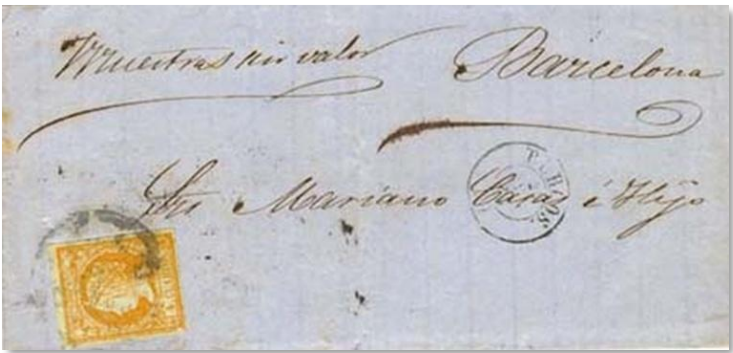 Muestras sin valor Barcelona
Sres Mariano Casas é Hijo